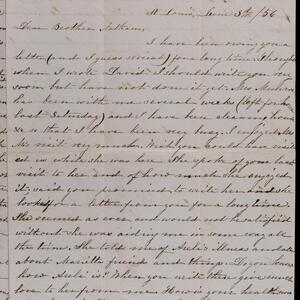 St Louis, June 8th /56
Dear Brother Nathan,
I have been owing you a
letter (and I guess several) for a long time. I thought
when I wrote David I should write you very
soon but have not done it yet. Mrs.
has been with me several weeks (left for
last Saturday) and I have been cleaning house
&c so that I have been very busy. I enjoyed Mrs
M's visit very much. Wish you could have visit-
ed us while she was here. She spoke of your last
visit to her and of how much she enjoyed
it; said you promised to write her and she
looked for a letter from you for a long time.
She seemed as ever and would not be satisfied
without she was aiding me in some way all
the time. She told me of illness and also
about friend and things. Do you know
how is? When you write then give much
love to her from me. How is your health now